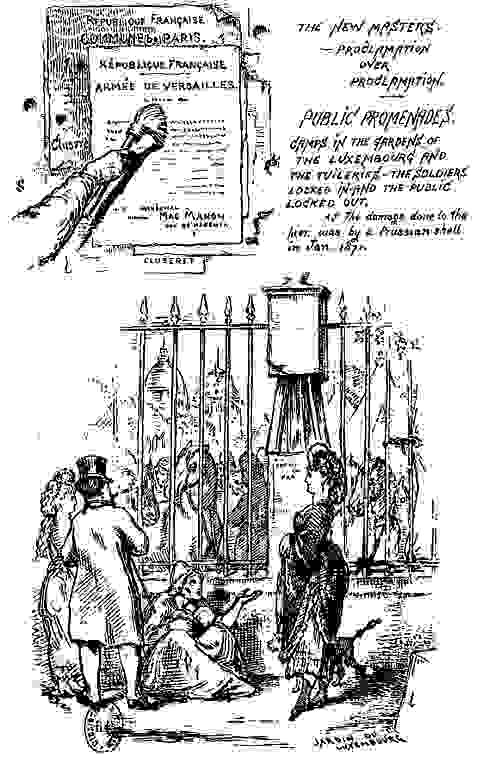 RÉPUBLIQUE FRANÇAISE
COMMUNE DE PARIS.
RÉPUBLIQUE FRANÇAISE
ARMÉE DE VERSAILLES.
MARÉCHAL
MAC MAHON
DUC DE MAGENTA
CLUSERET
THE NEW MASTERS.
—PROCLAMATION
OVER
PROCLAMATION.
PUBLIC PROMENADES.
CAMPS IN THE GARDENS OF
THE LUXEMBOURG AND
THE TUILERIES—THE SOLDIERS
LOCKED IN AND THE PUBLIC
LOCKED OUT.
The damage done to the
was by a Prussian shell
in Jan. 1871.
JARDIN DU
LUXEMBOURG